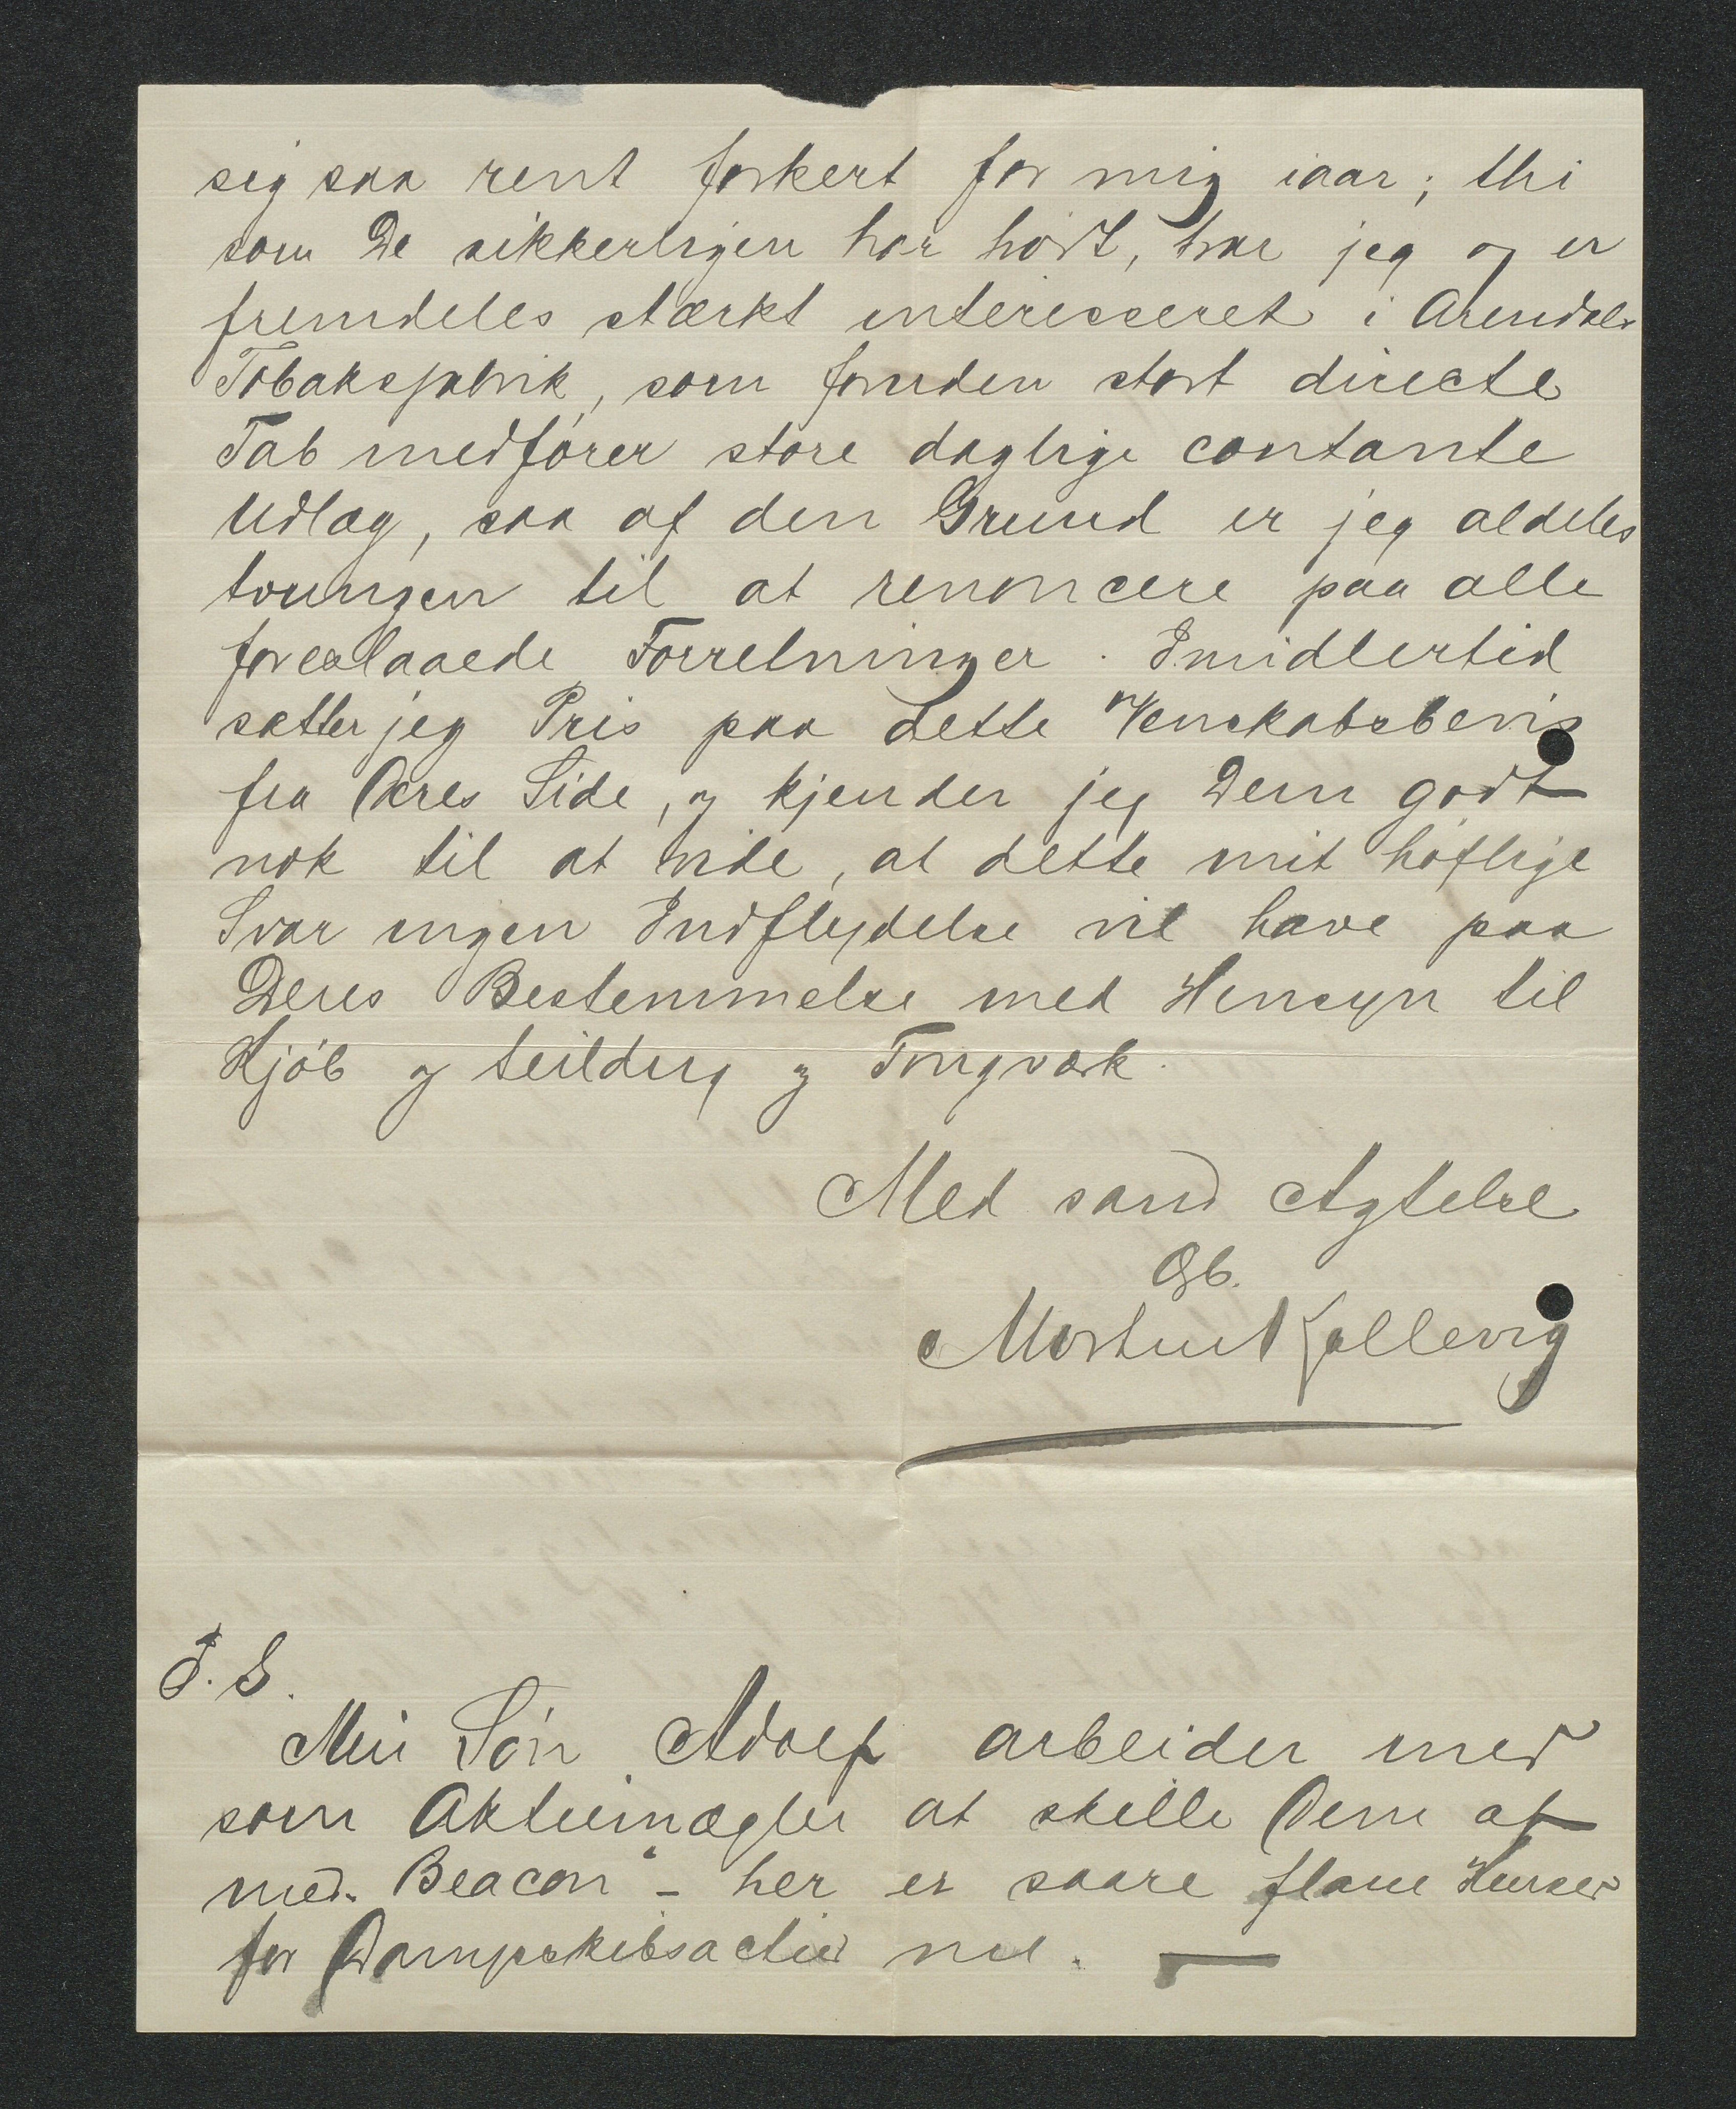 sig saa rent forkert for mig iaar; thi
som De sikkerligen har hört, var jeg og er
fremdeles stærkt interesseret i Arendals
Tobaksfabrik, som foruden stort directe
Tab medförer store daglige contante
Udlæg, saa af den Grund er jeg aldeles
tvungen til at renoncere paa alle
foreslaaede Forretninger. Imidlertid
sætter jeg Pris paa dette Venskabsbevis
fra Deres Side, og kjender jeg Dem godt
nok til at vide, at dette mit höflige
Svar ingen Indflydelse vil have paa
Deres Bestemmelse med Hensyn til
Kjöb og Seildug og Tougværk.
Med sand Agtelse
Ob.
Morten Kallevig
P.S.
Min Sön Adolf arbeider med
som Aktiemægler at skille Dem af
med "Beacon" - her er saare flaue Kurser
for Dampskibsactier nu. —